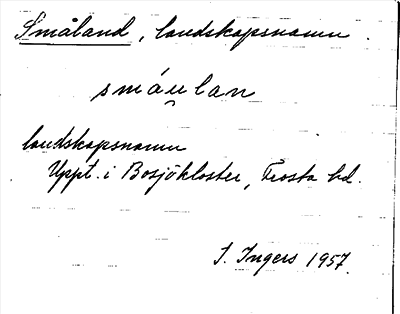 Småland, landskapsnamn.
smáu̯lan
landskapsnamn
Uppt. i Bosjökloster, Frosta hd.
I. Ingers 1957.